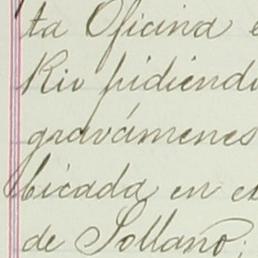 ta Oficina e
Rio pidiendo
gravámenes
bicada en es
de Sollano;